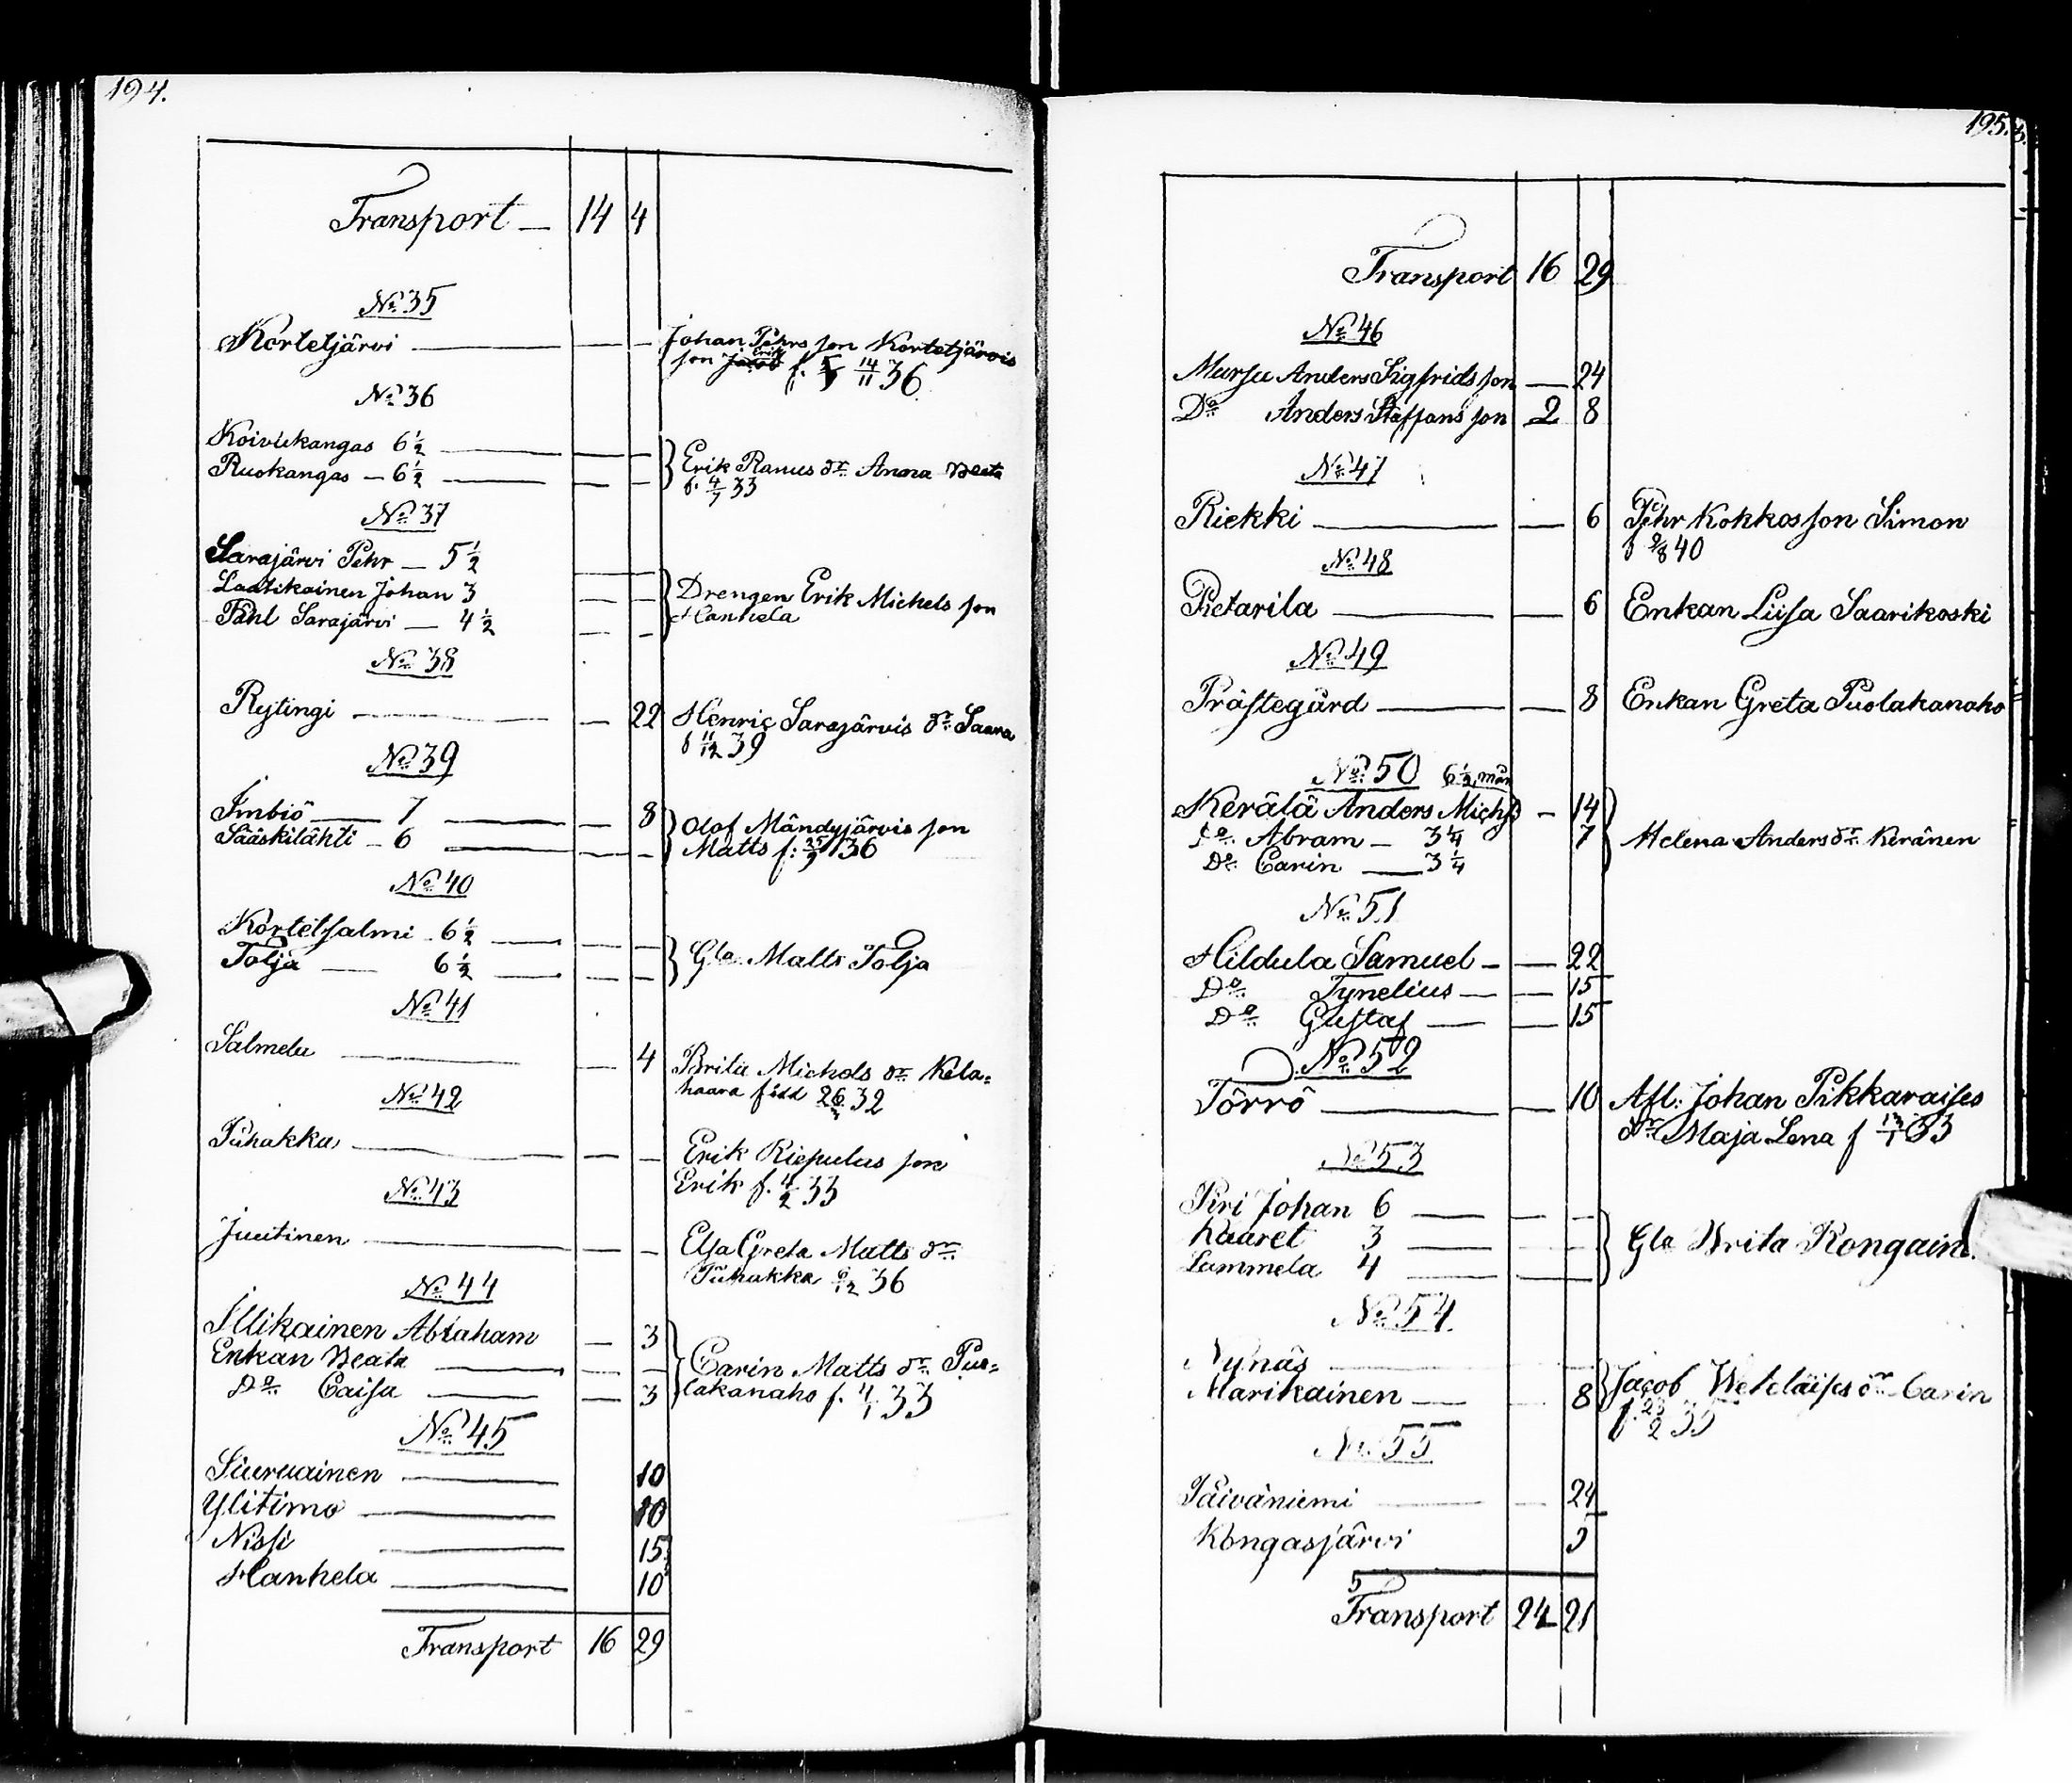 194.
Transport — 14 4
No 35
Kortetjärvi — — Johan Pehrs son Kortetjärvis
son Erik f. 14/11 36
No 36
Koivukangas 6 1/2 — — —
Ruokangas — 6 1/2 — — — Erik Ranus dr. Anna Beata
f. 4/7 33
No 37
Sarajärvi Pehr — 5 1/2
Laatikainen Johan 3 — — Drengen Erik Michels son
Påhl Sarajärvi — 4 1/2 — — Hanhela
No 38
Rytingi — — 22 Henric Sarajärvis dr. Saara
f 11/12 39
No 39
Imbiö — 7 — — 8 Olof Mändyjärvis son
Sääskilähti — 6 — — Matts f: 25/9 36
No 40
Kortetsalmi 6 1/2 — — —
Tolja — 6 1/2 — — — Gla. Matts Tolja
No 41
Salmela — — 4 Brita Michels dr. Kela=
haara född 26 32
No 42
Puhakka — — — Erik Riepulas son
Erik f. 4/2 33
No 43
Juutinen — — — Elsa Greta Matts dr.
Puhakka 6/12 36
No 44
Illikainen Abraham — 3
Enkan Beata — — — Carin Matts dr. Puo=
Do. Caisa — — 3 lakanaho f. 4/1 33
No 45
Siuruainen — 10
Ylitimo — 10
Nissi — 15
Hanhela — 10
Transport 16 29
195.
Transport 16 29
No 46
Mursu Anders Sigfrids son — 24
Do. Anders Staffans son 2 8
No 47
Riekki — — 6 Pehr Kokkos son Simon
f 2/8 40
No 48
Pietarila — — 6 Enkan Liisa Saarikoski
No 49
Prästegård — — 8 Enkan Greta Puolakanaho
No 50 6 1/2 man
Kerälä Anders Michs — 14
Do. Abram — 3 1/4 7 Helena Anders dr. Keränen
Do. Carin — 3 1/4
No 51
Hildula Samuel — — 22
Do. Tynelius — — 15
Do. Gustaf — — 15
No 52
Törrö — — 10 Afl: Johan Pikkaraises
dr. Maja Lena f 13/1 33
No 53
Piri Johan 6 — — —
Kaaret 3 — — — Gla Brita Rongain
Lammela 4 — — —
No 54
Nynäs —
Marikainen — 8 Jacob Weteläises dr. Carin
f. 28/2 35
No 55
Päiväniemi — — 24
Kongasjärvi 5
5
Transport 24 21